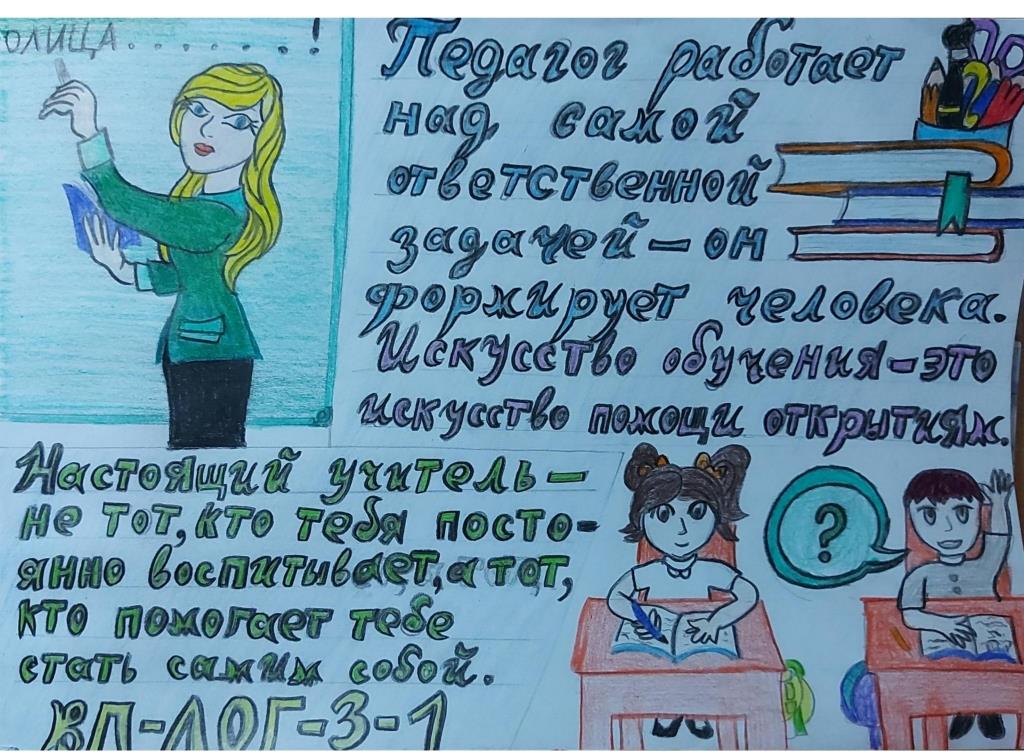 ОЛИЦА.......!
Педагог работает
над самой
ответственной
задачей — он
формирует человека.
Искусство обучения - это
искусство помощи открытиям.
Настоящий учитель —
не тот, кто тебя посто-
янно воспитывает, а тот,
кто помогает тебе
стать самим собой.
?
ВП-ЛОГ-3-1